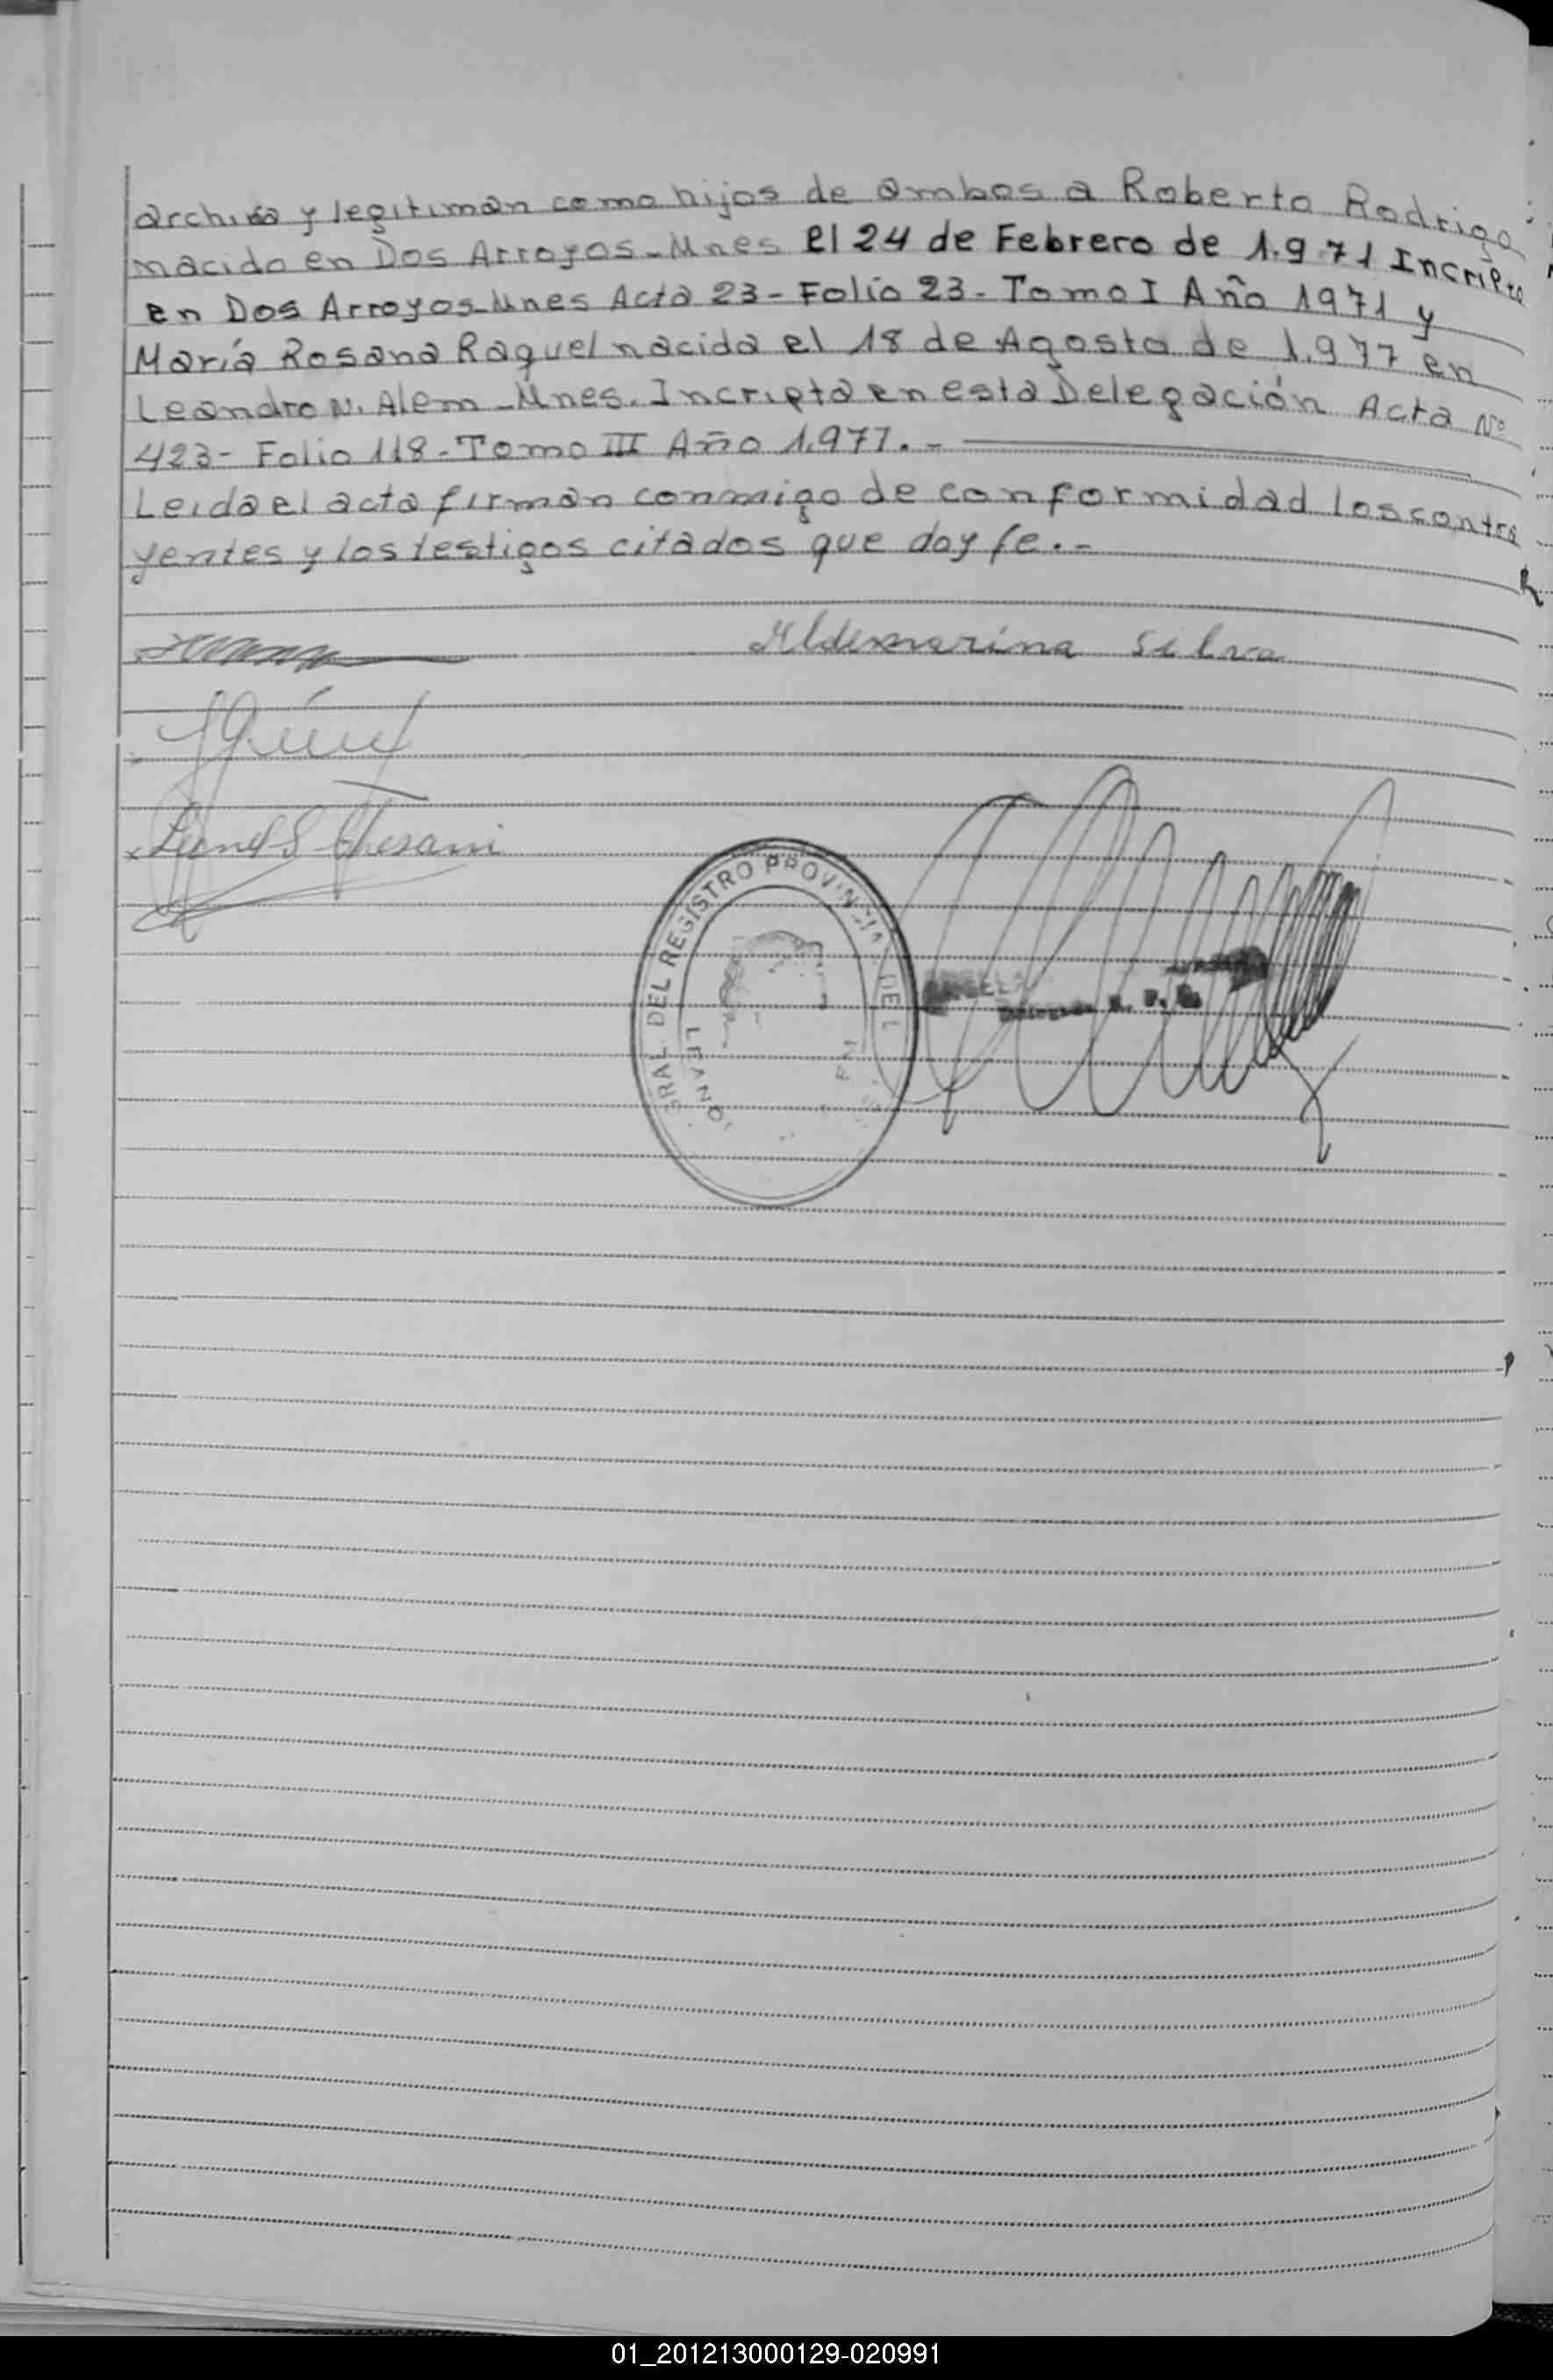 archiva y legitiman como hijos de ambos a Roberto Rodrigo
nacido en Dos Arroyos-Mnes el 24 de Febrero de 1.971 Incripto
en Dos Arroyos-Mnes Acta 23-Folio 23-Tomo I Año 1971 y
María Rosana Raquel nacida el 18 de Agosto de 1.977 en
Leandro N. Alem-Mnes. Incripta en esta Delegación Acta Nº
423- Folio 118-Tomo III Año 1.977.-
Leida el acta firman conmigo de conformidad los contra
yentes y los testigos citados que doy fe.-
Aldemarina Silva
DEL REGISTRO PROVINCIAL DE L
01_201213000129-020991